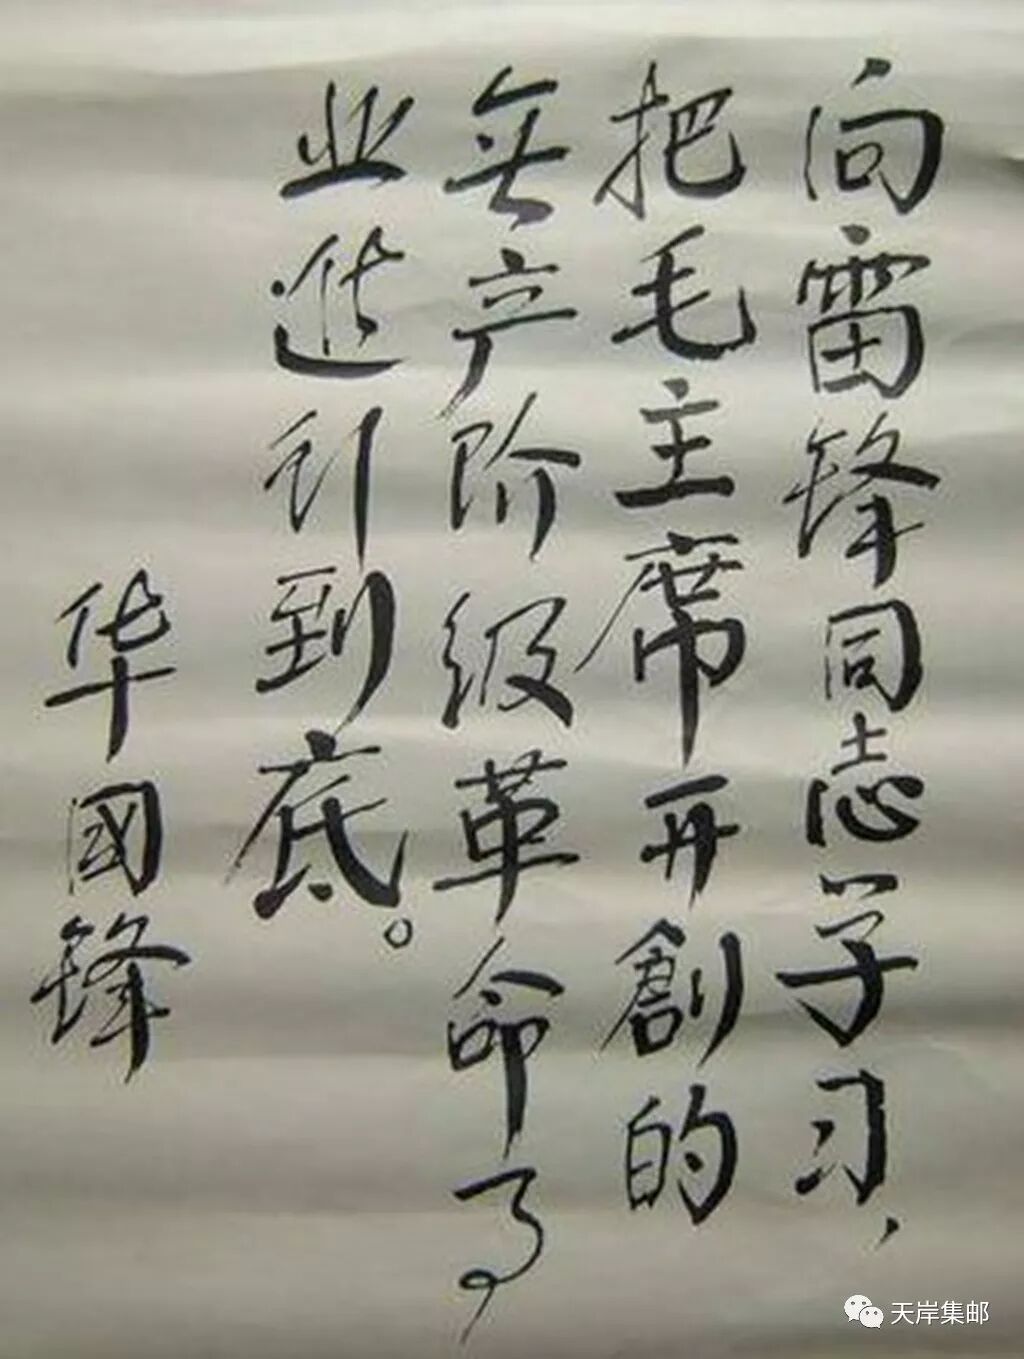 向雷锋同志学习，
把毛主席开創的
無产阶级革命事
业進行到底。
华國锋
天岸集邮